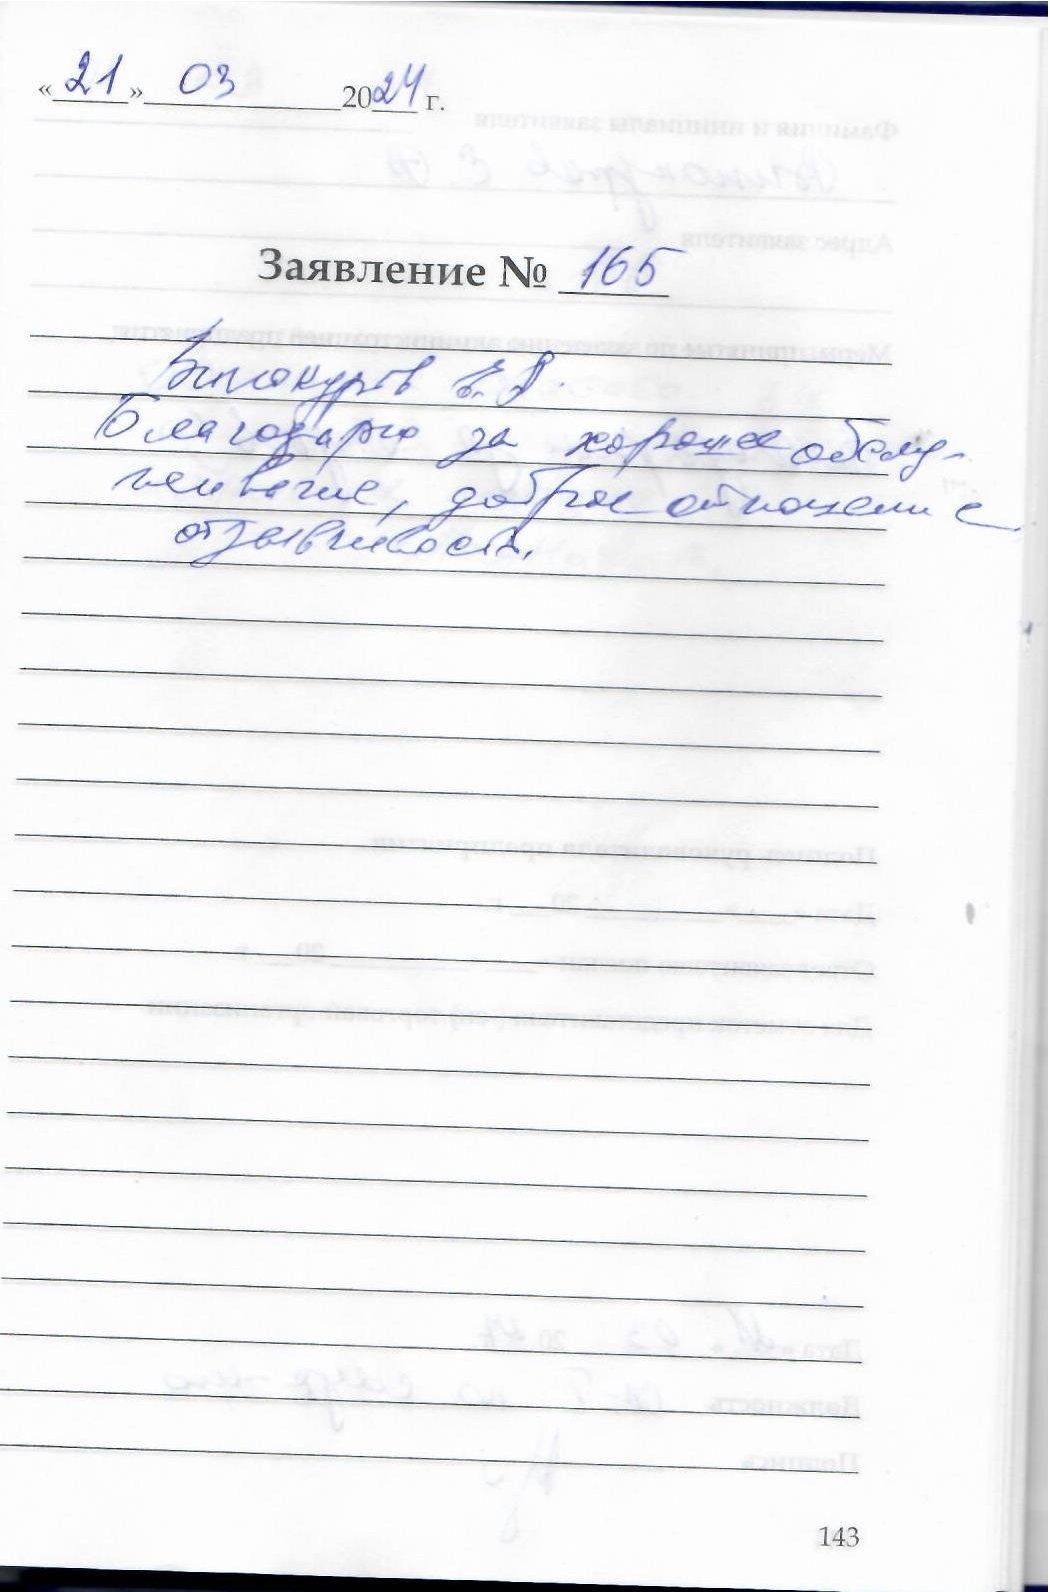 «21» 03 2024 г.
Заявление № 165
Винокуров Е. В.
Благодарю за хорошее обслу-
живание, доброе отношение
отзывчивость.
143